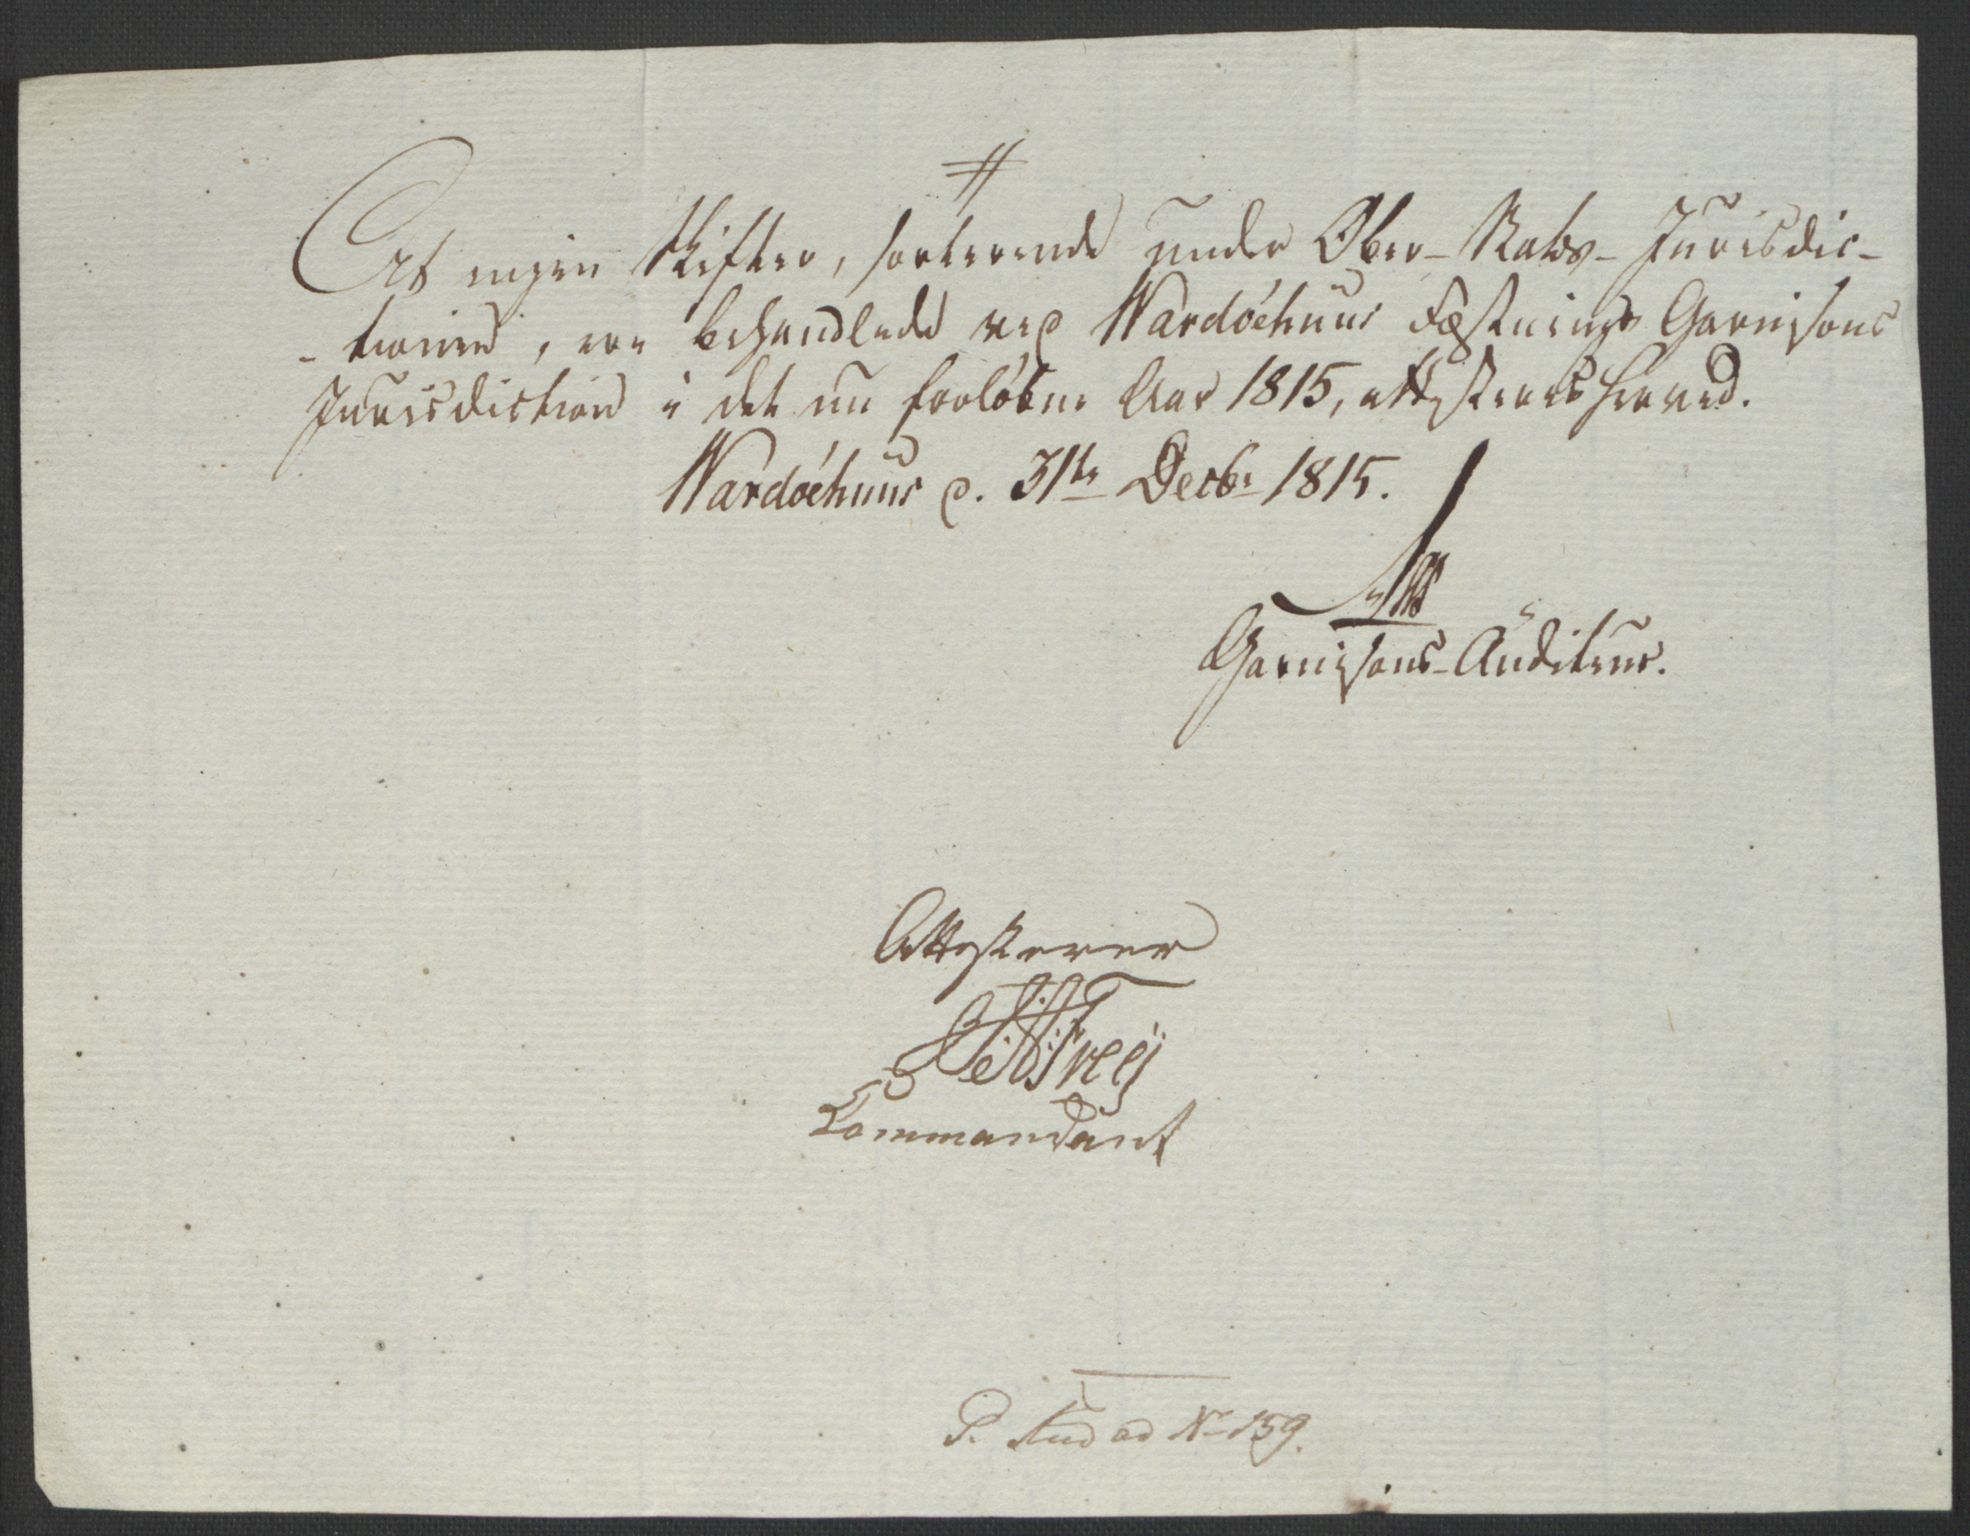 At ingen Skifter, sorterende under Ober-Rats-Jurisdic-
-tionen, ere behandlede ved Wardöehuus Fæstnings Garnisons
Jurisdiction i det nu forløbne Aar 1815, attesteres herved.
Wardöehuus d. 31te Decbr 1815.
Garnisons-Auditeur.
Attesterer
Commandant
ad No 159.